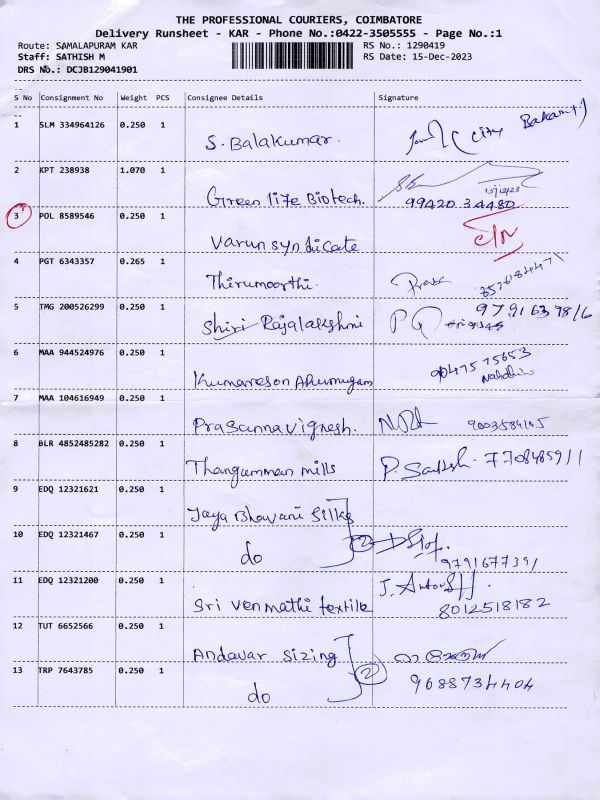 THE PROFESSIONAL COURIERS, COIMBATORE
Delivery Runsheet - KAR - Phone No.:0422-3505555 - Page No.:1
Route: SAMALAPURAM KAR RS No.: 1290419
Staff: SATHISH M RS Date: 15-Dec-2023
DRS No.: DCJB129041901
S No Consignment No Weight PCS Consignee Details Signature
1 SLM 334964126 0.250 1 S. Balakumar. City
2 KPT 238938 1.070 1 Green life Biotech. 15/12/23 99420 34480
3 POL 8589546 0.250 1 Varun syndicate
4 PGT 6343357 0.265 1 Thirumoorthi.
5 TMG 200526299 0.250 1 Shiri Rajalakshmi 9791639816
6 MAA 944524976 0.250 1 Kumareson Arumugam 9047575653
7 MAA 104616949 0.250 1 Prasannavignesh. 9003584105
8 BLR 4852485282 0.250 1 Thangamman mills P. Santhosh. 7708485911
9 EDQ 12321621 0.250 1 Jaya Bhavani Silks
10 EDQ 12321467 0.250 1 do 2 9791677391
11 EDQ 12321200 0.250 1 Sri venmathi textile 8012518182
12 TUT 6652566 0.250 1 Andavar sizing
13 TRP 7643785 0.250 1 do 2 9688734404